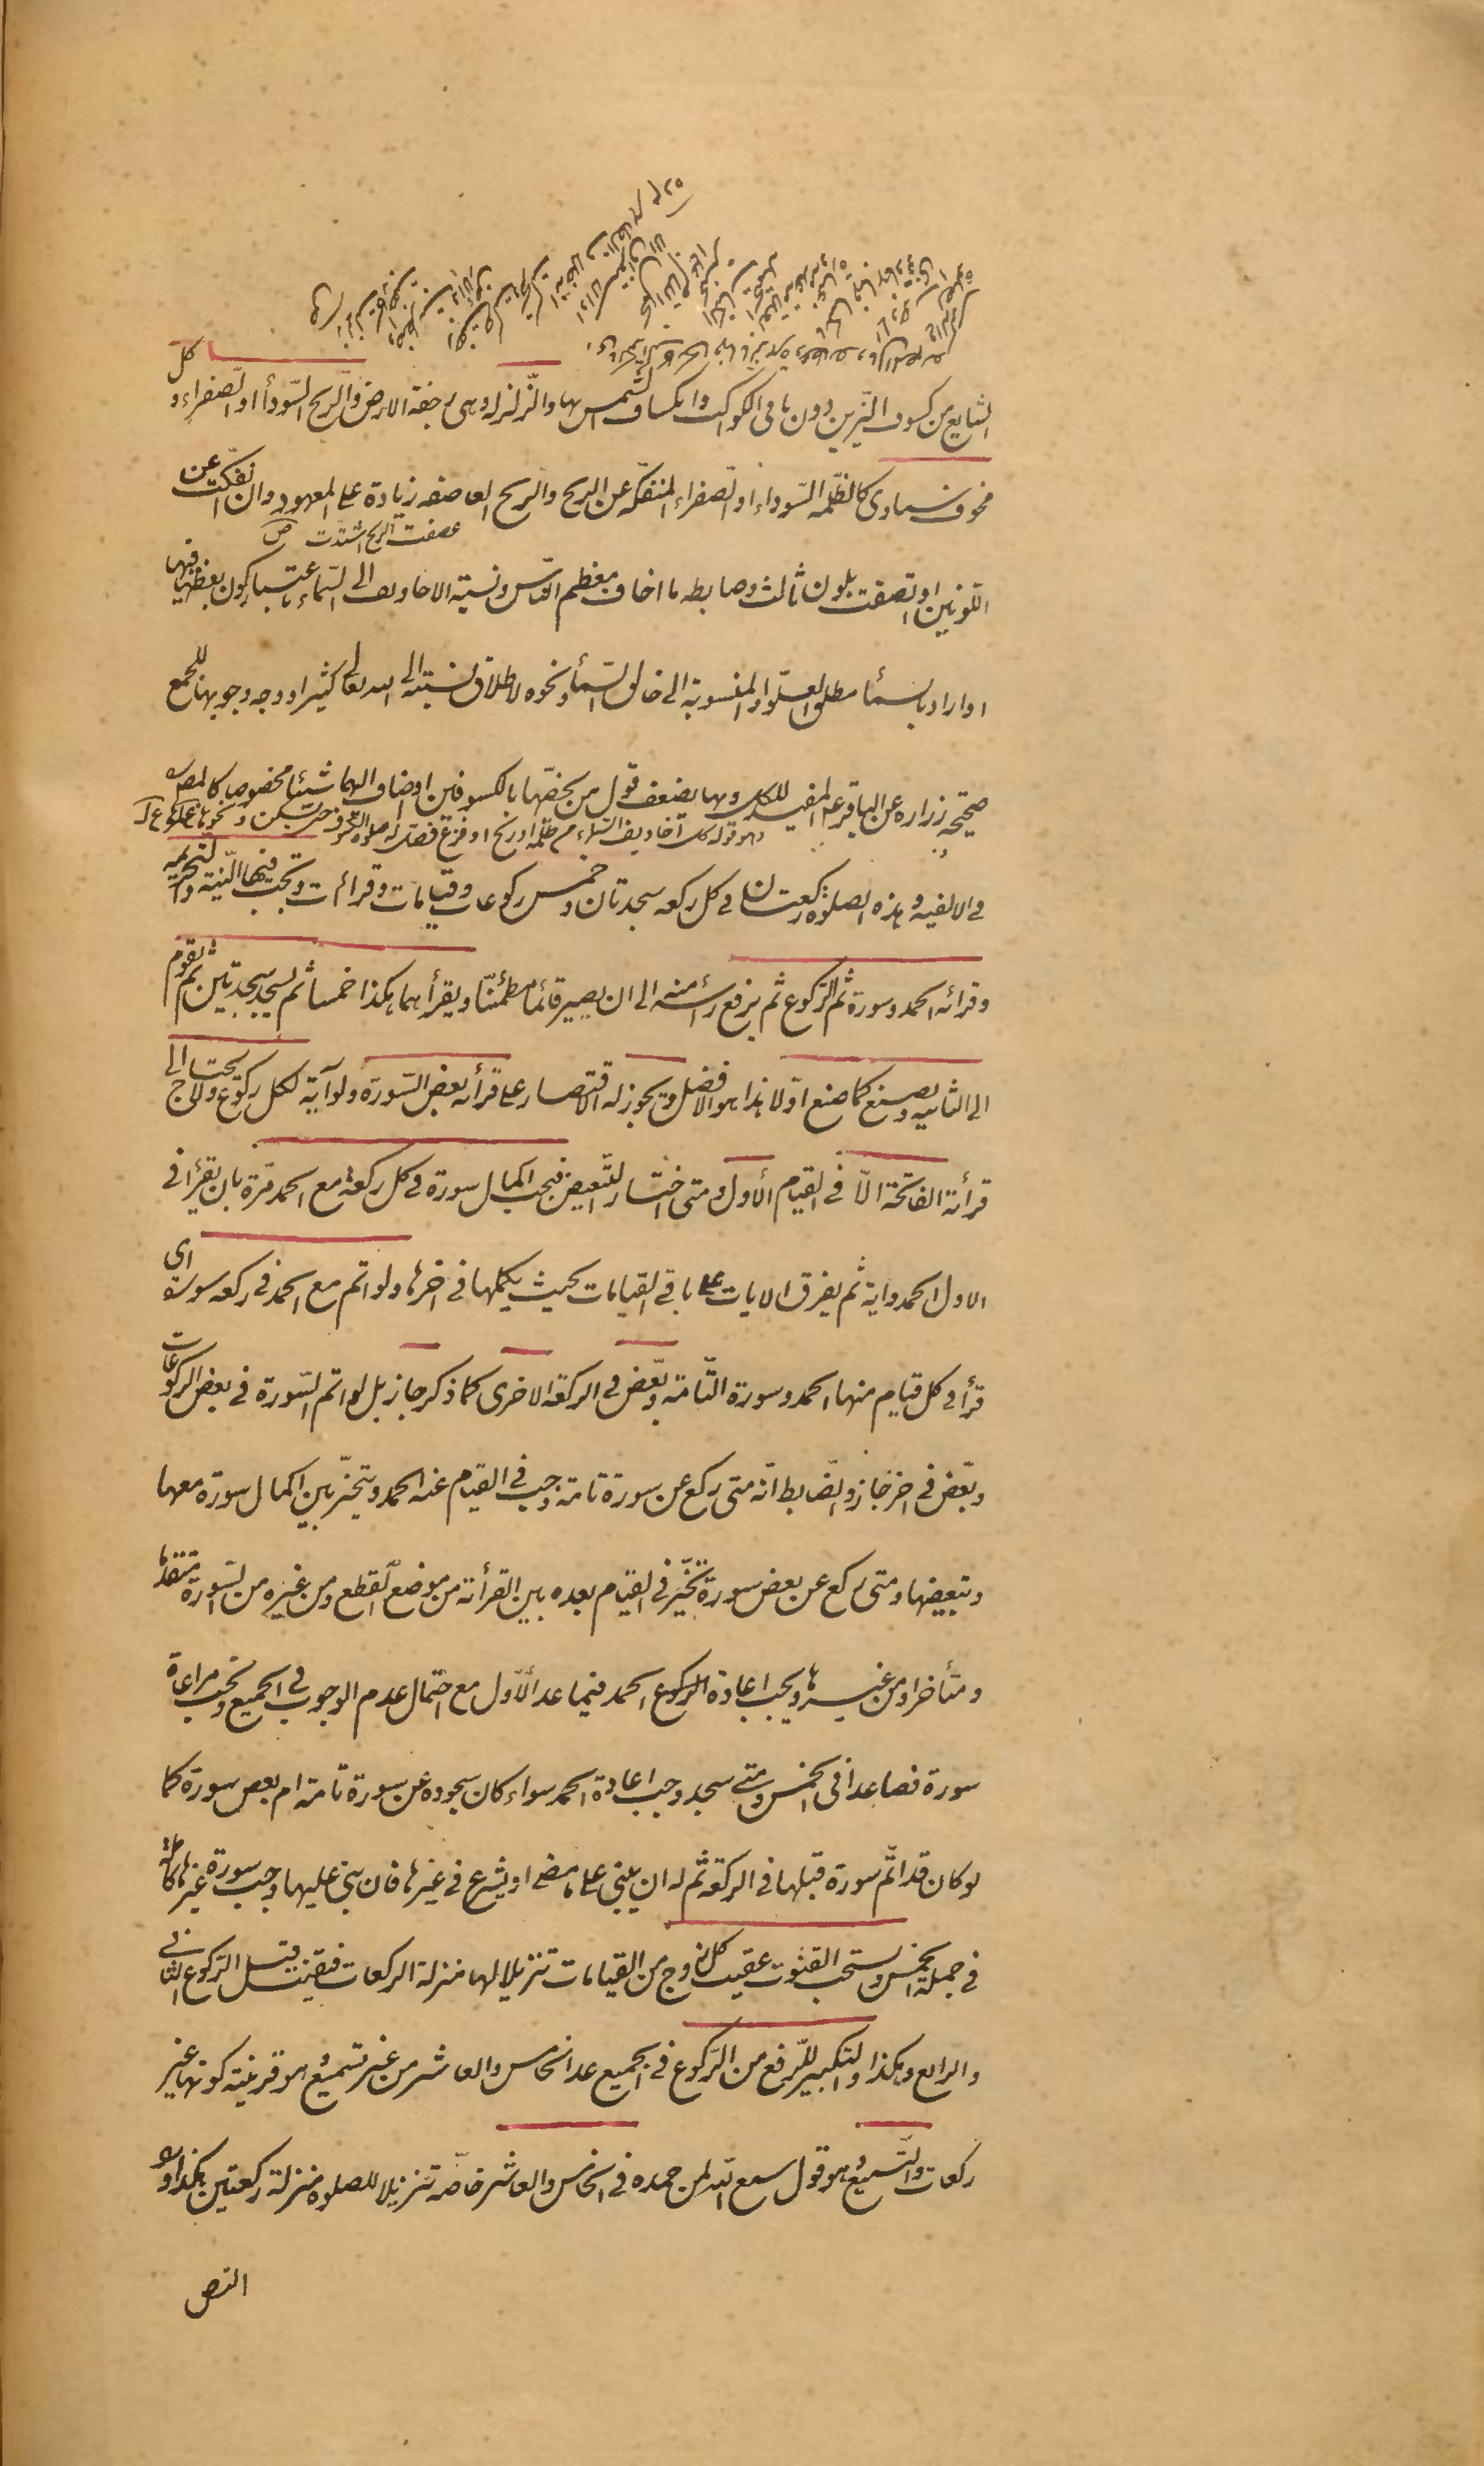 الشايع من كسوف النيرين دون باقى الكواكب وانكساف الشمس بها والزلزلة وهى رجفة الارض والريح السودأ او الصفراء وكل
مخوف سماوى كالظلمه السوداء او الصفراء المنفكه عن الريح والريح العاصفه زيادة على المعهود وان انفكت عن
عصفت الريح اشتدت ص
اللونين او اتصفت بلون ثالث وضابطه ما اخاف معظم الناس ونسبة الاخاويف الى السماء باعتبار كون بعضها فيها
او اراد بالسمأ مطلق العلو او المنسوبة الى خالق السمأ ونحوه لاطلاق نسبته الى الله تعالى كثيرا ووجه وجوبها للجمع
صحيحه زراره عن الباقر عم المفيد للكل وبها يضعف قول من يخصها بالكسوفين او ضاف اليهما شيئا مخصوصا كالمصره
وهو قوله كل اخاويف السماء من ظلمه او ريح او فزع فصل له صلوة الكسوف حتى يسكن ونحوها
فى الالفيه وهذه الصلوة ركعتان فى كل ركعه سجدتان وخمس ركوعات وقيامات وقرائات وتجب فيها النية والتحريمه
وقرائه الحمد وسورة ثم الركوع ثم يرفع رأسه منه الى ان يصير قائما مطمئنا ويقرأهما هكذا خمسا ثم يسجد سجدتين ثم يقوم
الى الثانيه ويصنع كما صنع اولا هذا هو الافضل ويجوز له الاقتصار على قرأته بعض السورة ولو آية لكل ركوع ولا يحتاج الى
قرأته الفاتحة الا فى القيام الأول ومتى اختار التبعيض فيجب اكمال سورة فى كل ركعة مع الحمد مرة بان يقرأ فى
الاول الحمد واية ثم يفرق الايات على باقى القيامات بحيث يكملها فى اخرها ولو اتم مع الحمد فى ركعه سورة اى
قرأ فى كل قيام منها الحمد وسورة التامة وبعض فى الركعة الاخرى كما ذكر جاز بل لو اتم السورة فى بعض الركوعات
وبعض فى اخر جاز والضابط انه متى ركع عن سورة تامة وجب فى القيام عنه الحمد ويتخير بين اكمال سورة معها
وتبعيضها ومتى ركع عن بعض سورة تخير فى القيام بعده بين القرأته من موضع القطع ومن غيره من السورة متقدما
ومتأخرا ومن غيرها ويجب اعادة الركوع الحمد فيما عدا الأول مع احتمال عدم الوجوب فى الجميع ويجب مراعاة
سورة فصاعدا فى الخمس ومتى سجد وجب اعادة الحمد سواء كان سجوده عن سورة تامة ام بعض سورة كما
لو كان قد اتم سورة قبلها فى الركعة ثم له ان يبنى على ما مضى او يشرع فى غيرها فان بنى عليها وجب سورة غيرها كاملة
فى جملة الخمس ويستحب القنوت عقيب كل زوج من القيامات تنزيلا لها منزلة الركعات فيقنت قبل الركوع الثانى
والرابع وهكذا والتكبير للرفع من الركوع فى الجميع عدا الخامس والعاشر من غير تسميع وهو قرينة كونها غير
ركعات والتسميع وهو قول سمع الله لمن حمده فى الخامس والعاشر خاصة تنزيلا للصلوة منزلة ركعتين هكذا ورد
النص